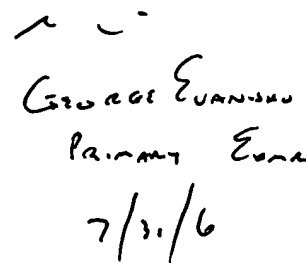 GEORGE EVANISKO
PRIMARY EXAM
7/31/6